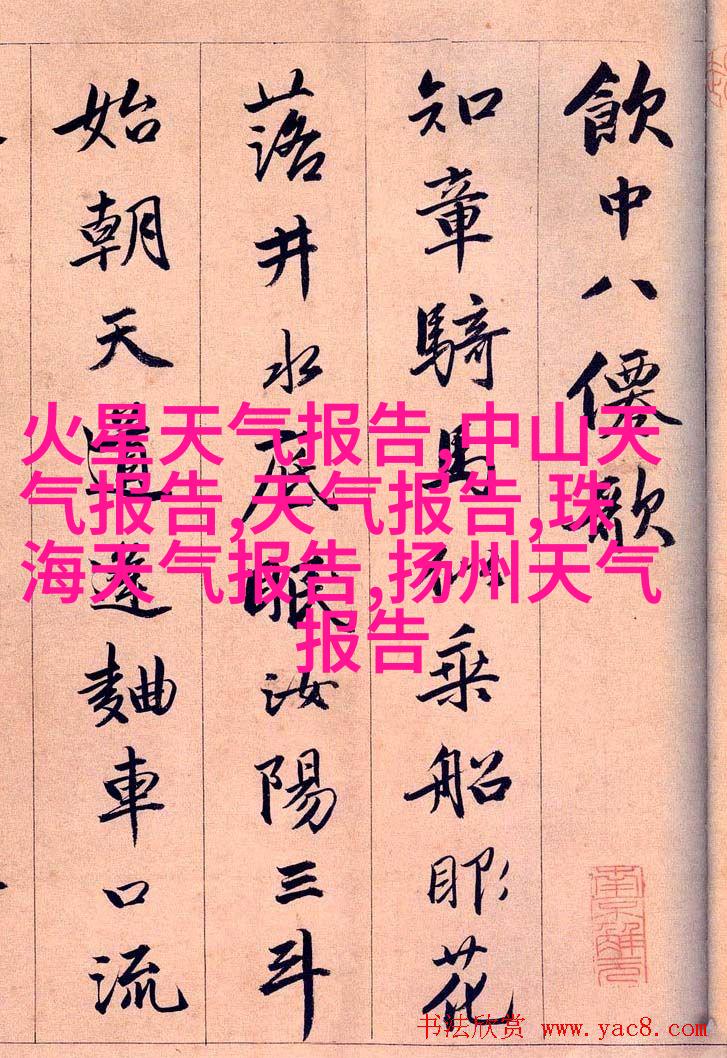 飲中八僊歌
知章騎馬似乘船眼花
落井水底眠汝陽三斗
始朝天道逢麯車口流
火星天气报告,中山天
气报告,天气报告,珠
海天气报告,扬州天气
报告
南京解元
书法欣赏 www.yac8.com